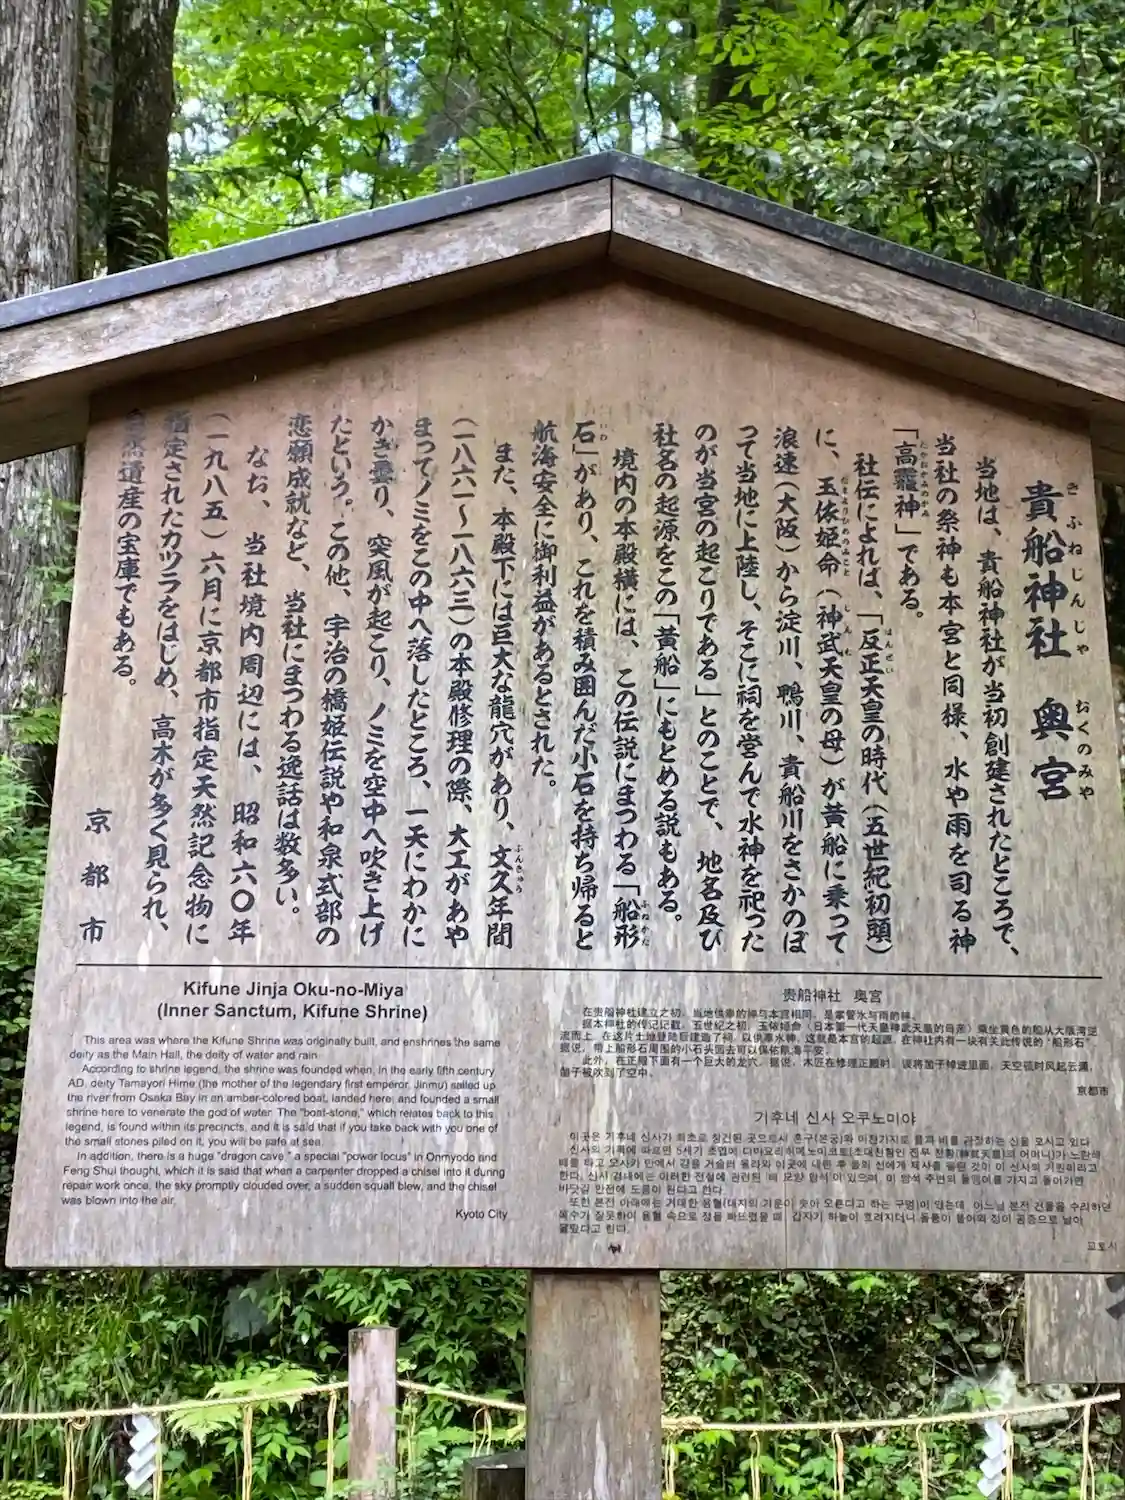 貴船神社 奥宮
きふねじんじゃ おくのみや
当地は、貴船神社が当初創建されたところで、
当社の祭神も本宮と同様、水や雨を司る神
「高龗神」である。
たかおかみのかみ
社伝によれば、「反正天皇の時代(五世紀初頭)
はんぜい
に、玉依姫命(神武天皇の母)が黄船に乗って
たまよりひめのみこと じんむ
浪速(大阪)から淀川、鴨川、貴船川をさかのぼ
って当地に上陸し、そこに祠を営んで水神を祀った
のが当宮の起こりである」とのことで、地名及び
社名の起源をこの「黄船」にもとめる説もある。
境内の本殿横には、この伝説にまつわる「船形
ふなかた
石」があり、これを積み囲んだ小石を持ち帰ると
いわ
航海安全に御利益があるとされた。
また、本殿下には巨大な龍穴があり、文久年間
ぶんきゅう
(一八六一~一八六三)の本殿修理の際、大工があや
まってノミをこの中へ落したところ、一天にわかに
かき曇り、突風が起こり、ノミを空中へ吹き上げ
たという。この他、宇治の橋姫伝説や和泉式部の
恋願成就など、当社にまつわる逸話は数多い。
なお、当社境内周辺には、昭和六〇年
(一九八五)六月に京都市指定天然記念物に
指定されたカツラをはじめ、高木が多く見られ、
自然遺産の宝庫でもある。
京都市
Kifune Jinja Oku-no-Miya
(Inner Sanctum, Kifune Shrine)
This area was where the Kifune Shrine was originally built, and enshrines the same
deity as the Main Hall, the deity of water and rain.
According to shrine legend, the shrine was founded when, in the early fifth century
AD, deity Tamayori Hime (the mother of the legendary first emperor, Jinmu) sailed up
the river from Osaka Bay in an amber-colored boat, landed here, and founded a small
shrine here to venerate the god of water. The "boat-stone," which relates back to this
legend, is found within its precincts, and it is said that if you take back with you one of
the small stones piled on it, you will be safe at sea.
In addition, there is a huge "dragon cave," a special "power locus" in Onmyodo and
Feng Shui thought, which it is said that when a carpenter dropped a chisel into it during
repair work once, the sky promptly clouded over, a sudden squall blew, and the chisel
was blown into the air.
Kyoto City
贵船神社 奥宫
在贵船神社建立之初，当地供奉的神与本宫相同，是掌管水与雨的神。
据本神社的传记记载，五世纪之初，玉依姬命（日本第一代天皇神武天皇的母亲）乘坐黄色的船从大阪湾逆
流而上，在这片土地登陆后建造了祠，以供奉水神，这就是本宫的起源。在神社内有一块有关此传说的“船形石”。
据说，带上船形石周围的小石头回去可以保佑航海平安。
此外，在正殿下面有一个巨大的龙穴。据说，木匠在修理正殿时，误将凿子掉进里面，天空顿时风起云涌，
凿子被吹到了空中。
京都市
기후네 신사 오쿠노미야
이곳은 기후네 신사가 최초로 창건된 곳으로서 혼구(본궁)와 마찬가지로 물과 비를 관장하는 신을 모시고 있다.
교토시